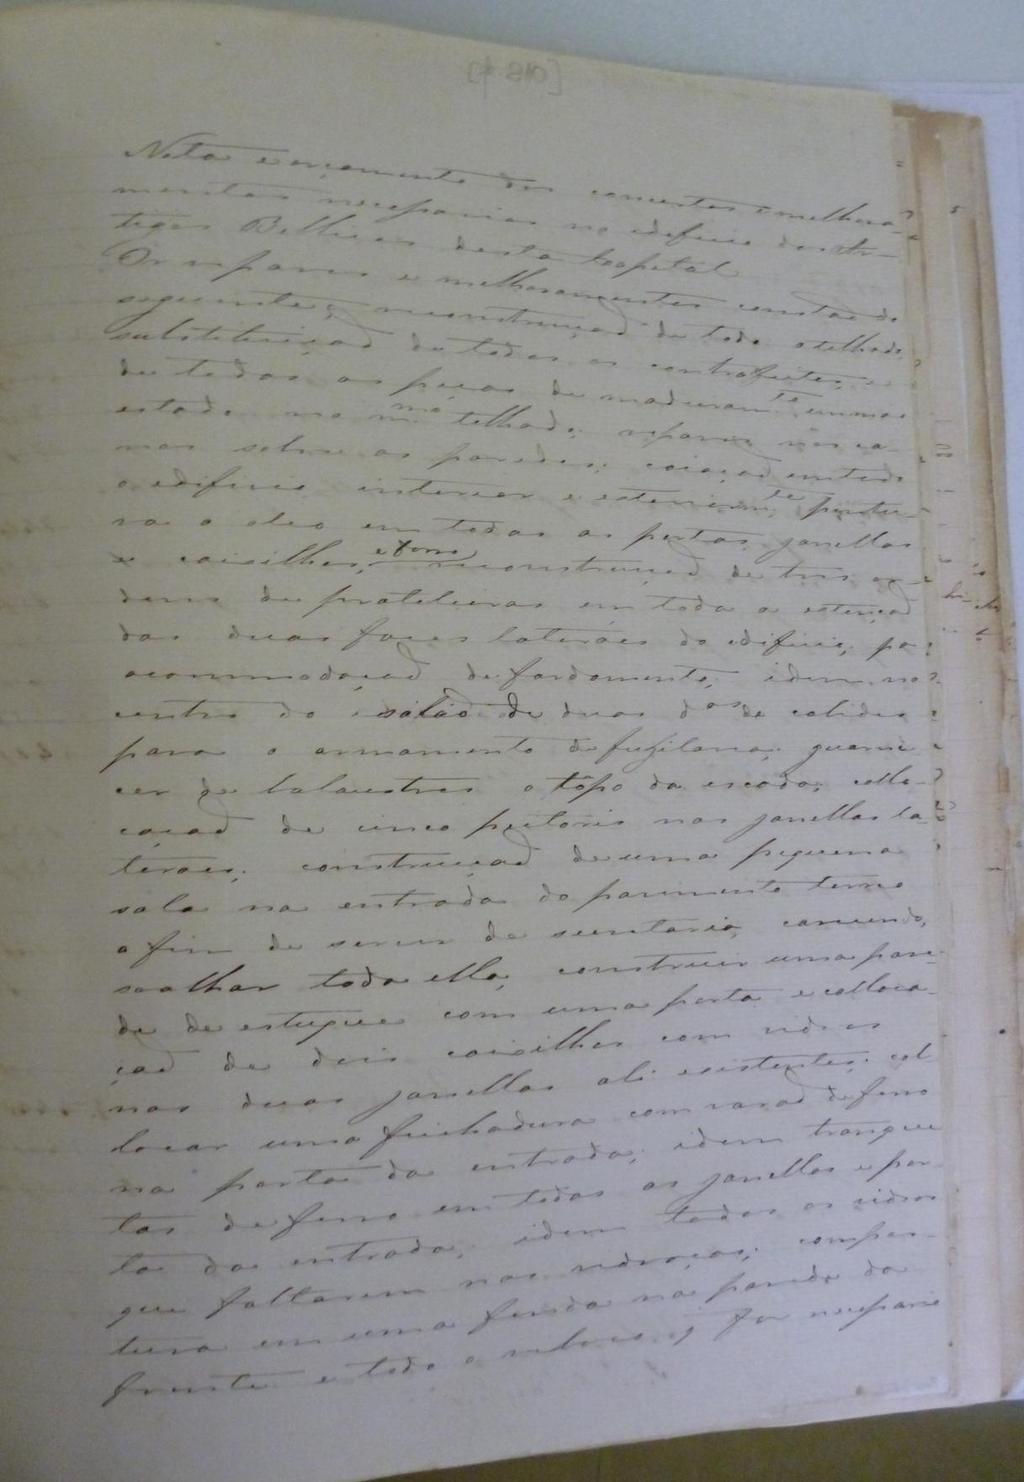 Nota e orçamento dos concertos e melhora-
mentos necessarios no edificio dos Ar-
tigos Bellicos desta Capital
Os reparos e melhoramentos constão do
seguinte; reconstrucção de todo o telhado,
substituição de todos os contrafeitos, e
de todas as peças de madeiram te em mao
estado no m mo telhado; reparos nos ca-
nos sobre as paredes; caiação em todo
o edificio interior e exteriorm te, pintu-
ra a oleo em todas as portas janellas
e caixilhos, e forro reconstrucção de tres or-
dens de prateleiras em toda a estenção
das duas faces lateraes do edificio, pa
acommodação de fardamento; idem no
centro do salão de duas d as de cabides
para o armamento de fuzilaria; guarne
cer de balaustres o tôpo da escada; collo-
cação de cinco peitoris nas janellas la-
teraes; construcção de uma pequena
sala na entrada do pavimento terreo
a fim de servir de secretaria, carecendo,
soalhar toda ella, construir uma pare-
de de estuque com uma porta e colloca-
ção de dois caixilhos com vidros
nas duas janellas ali existentes; col
locar uma fechadura com varão de ferro
na porta da entrada; idem tranque
tas de ferro em todas as janellas e por-
ta da entrada; idem todos os vidros
que faltarem nas vidraças; compos-
tura em uma fenda na parede da
frente e todo o reboco q for necessario